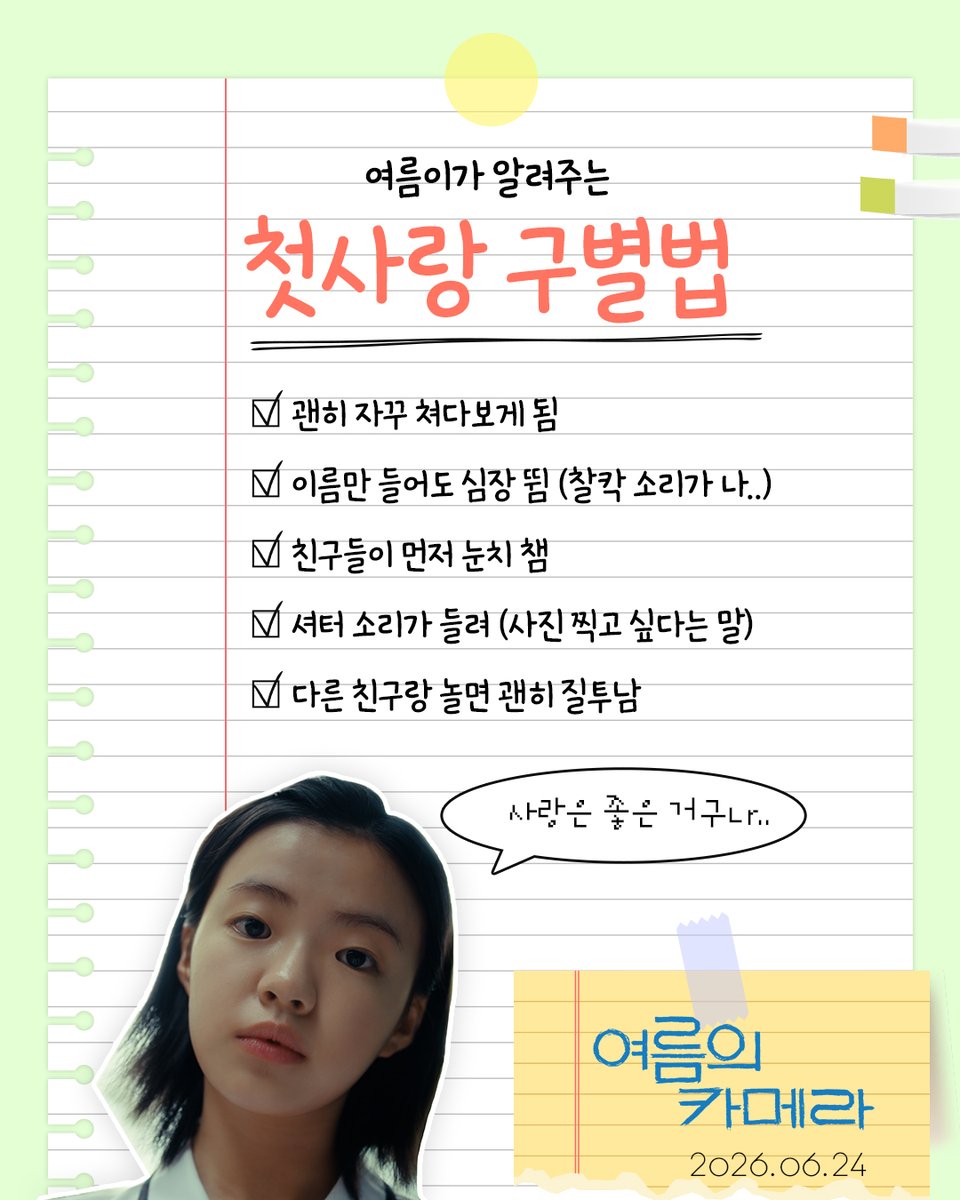 여름이가 알려주는
첫사랑 구별법
괜히 자꾸 쳐다보게 됨
이름만 들어도 심장 뜀 (찰칵 소리가 나..)
친구들이 먼저 눈치 챔
셔터 소리가 들려 (사진 찍고 싶다는 말)
다른 친구랑 놀면 괜히 질투남
사랑은 좋은 거구나..
여름의
카메라
2026.06.24